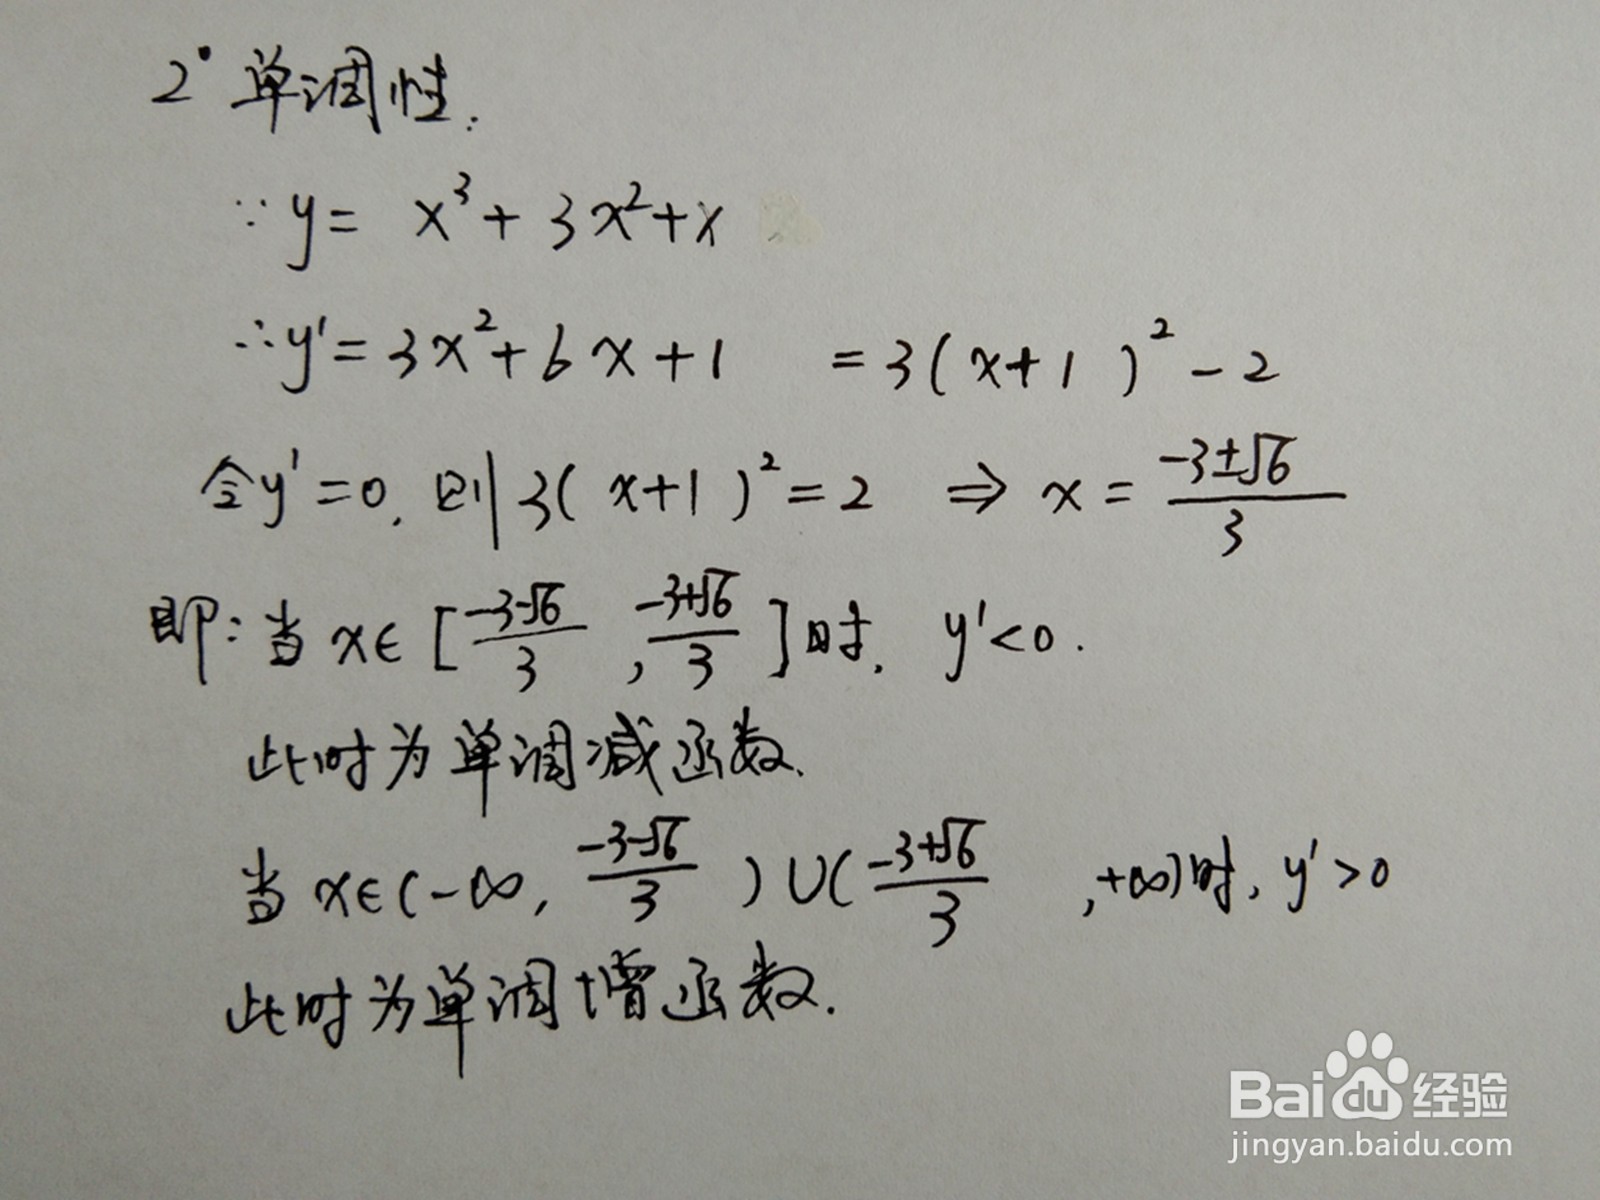 2° 单调性:
∵y= x³+3x²+x
∴y'=3x²+6x+1 =3(x+1)²-2
令y'=0,则3(x+1)²=2 ⇒ x=(-3±√6)/3
即:当x∈[(-3-√6)/3,(-3+√6)/3]时,y'<0.
此时为单调减函数.
当x∈(-∞,(-3-√6)/3)∪((-3+√6)/3,+∞)时,y'>0
此时为单调增函数.
Baidu经验
jingyan.baidu.com